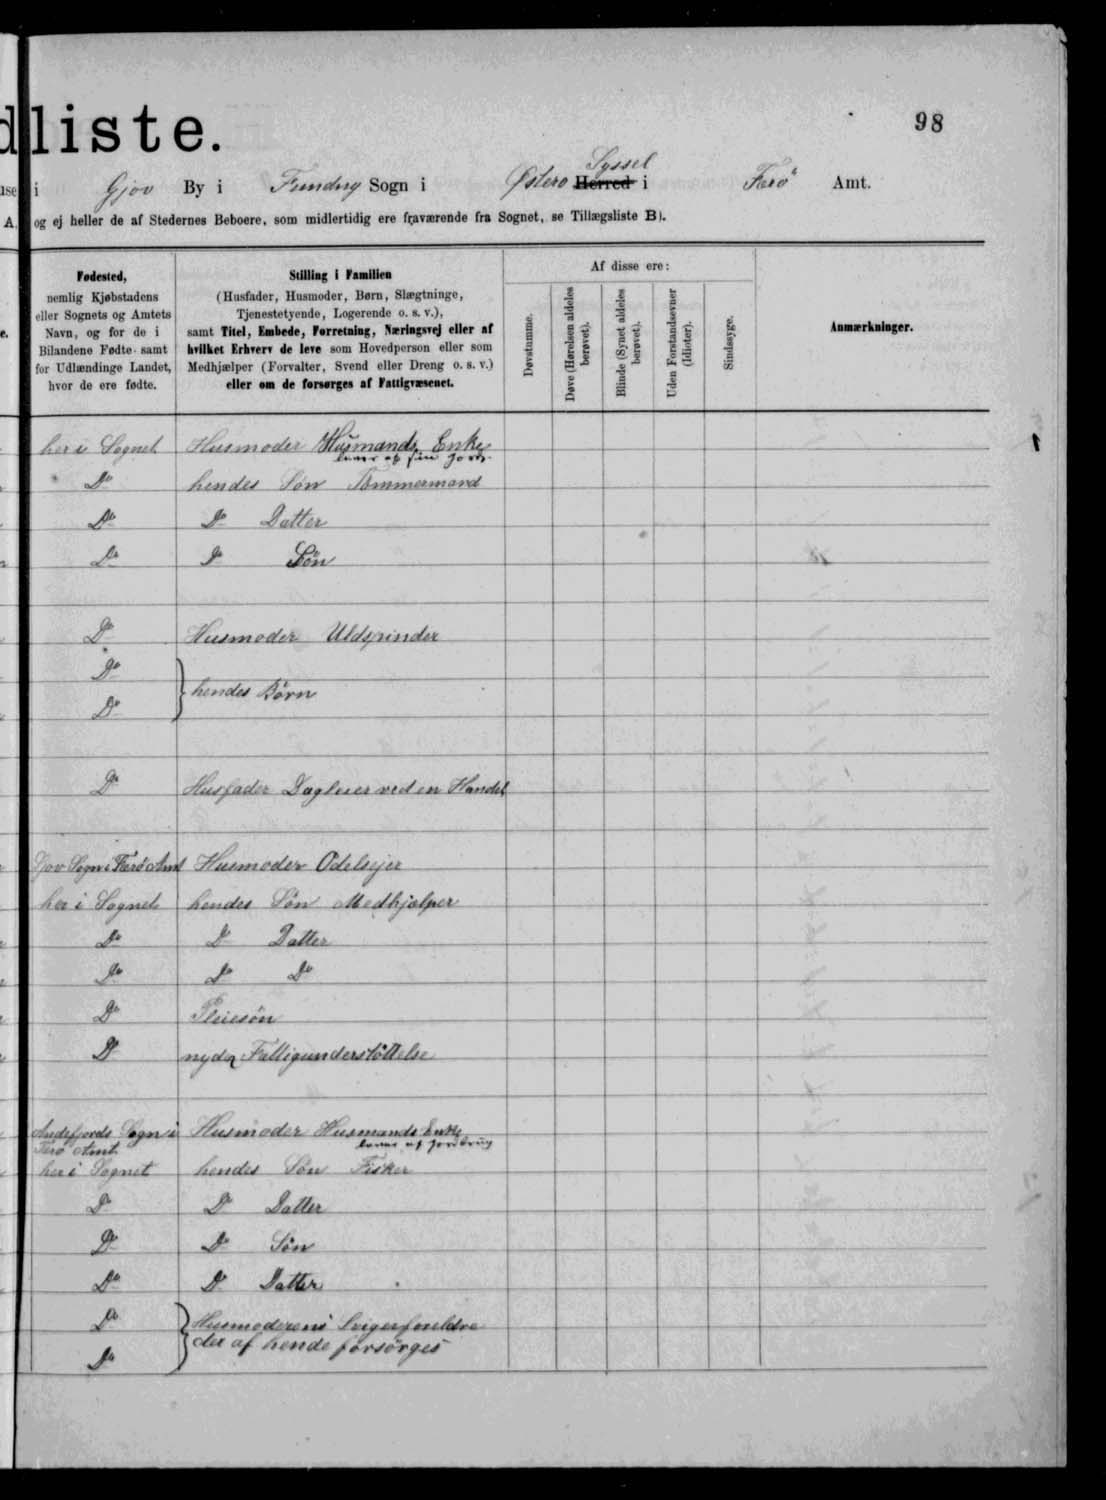 dliste.
98
use i Gjov By i Funding Sogn i Østerø Herred Syssel i Færö Amt.
A, og ej heller de af Stedernes Beboere, som midlertidig ere fraværende fra Sognet, se Tillægsliste B).
Fødested,
nemlig Kjøbstadens
eller Sognets og Amtets
Navn, og for de i
Bilandene Fødte samt
for Udlændinge Landet,
hvor de ere fødte.
Stilling i Familien
(Husfader, Husmoder, Børn, Slægtninge,
Tjenestetyende, Logerende o. s. v.),
samt Titel, Embede, Forretning, Næringsvej eller af
hvilket Erhverv de leve som Hovedperson eller som
Medhjælper (Forvalter, Svend eller Dreng o. s. v.)
eller om de forsørges af Fattigvæsenet.
Af disse ere:
Døvstumme.
Døve (Hørelsen aldeles
berøvet).
Blinde (Synet aldeles
berøvet).
Uden Forstandsevner
(Idioter).
Sindssyge.
Anmærkninger.
her i Sognet Husmoder Husmands Enke
lever af sin Jord.
Do hendes Søn Tømmermand
Do Do Datter
Do Do Søn
Do Husmoder Uldspinder
Do
hendes Børn
Do
Do Husfader Dagleier ved en Handel
Gjov Sogn i Færö Amt Husmoder Odelsejer
her i Sognet hendes Søn Medhjælper
Do Do Datter
Do Do Do
Do Pleiesøn
Do nyder Fattigunderstöttelse
Andefjords Sogn i Husmoder Husmands Enke
Færö Amt. lever af Jordbrug
her i Sognet hendes Søn Fisker
Do Do Datter
Do Do Søn
Do Do Datter
Do Husmoderens Svigerforeldre
Do der af hende forsörges